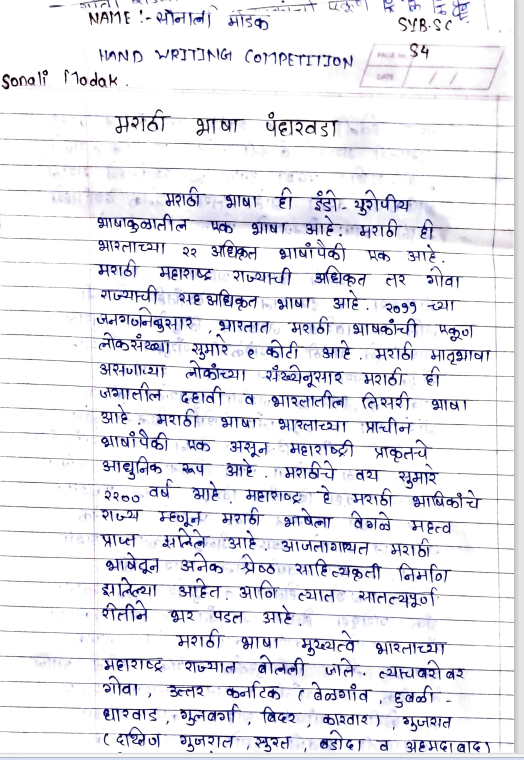 NAME :- सोनाली मोडक SYB.SC
HAND WRITING COMPETITION
PAGE NO. 54
DATE / /
Sonali Modak.
मराठी भाषा पंधरवडा
मराठी भाषा ही इंडो-युरोपीय
भाषाकुळातील एक भाषा आहे. मराठी ही
भारताच्या २२ अधिकृत भाषांपैकी एक आहे.
मराठी महाराष्ट्र राज्याची अधिकृत तर गोवा
राज्याची सह अधिकृत भाषा आहे. २०११ च्या
जनगणनेनुसार, भारतात मराठी भाषकांची एकूण
लोकसंख्या सुमारे ९ कोटी आहे. मराठी मातृभाषा
असणाऱ्या लोकांच्या संख्येनुसार मराठी ही
जगातील दहावी व भारतातील तिसरी भाषा
आहे. मराठी भाषा भारताच्या प्राचीन
भाषांपैकी एक असून महाराष्ट्री प्राकृतचे
आधुनिक रूप आहे. मराठीचे वय सुमारे
२२०० वर्ष आहे. महाराष्ट्र हे मराठी भाषिकांचे
राज्य म्हणून मराठी भाषेला वेगळे महत्व
प्राप्त झालेले आहे. आजतागायत मराठी
भाषेतून अनेक श्रेष्ठ साहित्यकृती निर्माण
झालेल्या आहेत. आणि त्यात सातत्यपूर्ण
रीतीने भर पडत आहे.
मराठी भाषा मुख्यत्वे भारताच्या
महाराष्ट्र राज्यात बोलली जाते. त्याचबरोबर
गोवा, उत्तर कर्नाटक (बेळगांव, हुबळी-
धारवाड, गुलबर्गा, बिदर, कारवार), गुजरात
(दक्षिण गुजरात, सुरत, बडोदा व अहमदाबाद)